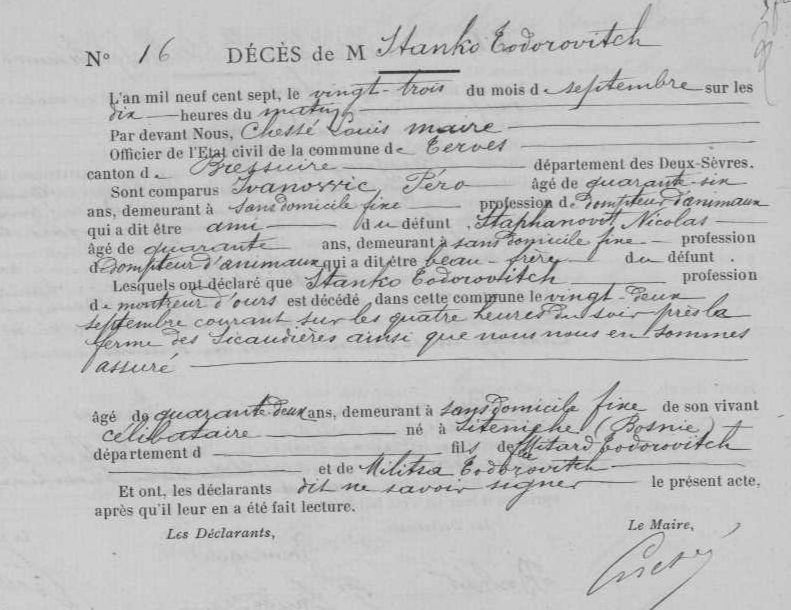 N° 16 DÉCÈS de M Stanko Todorovitch
L'an mil neuf cent sept, le vingt-trois du mois de septembre sur les
dix heures du matin
Par devant Nous, Chessé Louis maire
Officier de l'Etat civil de la commune de Terves
canton de Bressuire département des Deux-Sèvres.
Sont comparus Ivanovvic Péro âgé de quarante-six
ans, demeurant à sans domicile fixe profession de dompteur d'animaux
qui a dit être ami du défunt, Staphanovit Nicolas
âgé de quarante ans, demeurant à sans domicile fixe profession
de dompteur d'animaux qui a dit être beau-frère du défunt.
Lesquels ont déclaré que Stanko Todorovitch profession
de montreur d'ours est décédé dans cette commune le vingt-deux
septembre courant sur les quatre heures du soir près la
ferme des Sicaudières ainsi que nous nous en sommes
assuré
âgé de quarante deux ans, demeurant à sans domicile fixe de son vivant
célibataire né à Siteniche (Bosnie)
département d fils de Mitard Todorovitch
et de Militza Todorovitch
Et ont, les déclarants dit ne savoir signer le présent acte,
après qu'il leur en a été fait lecture.
Les Déclarants, Le Maire,